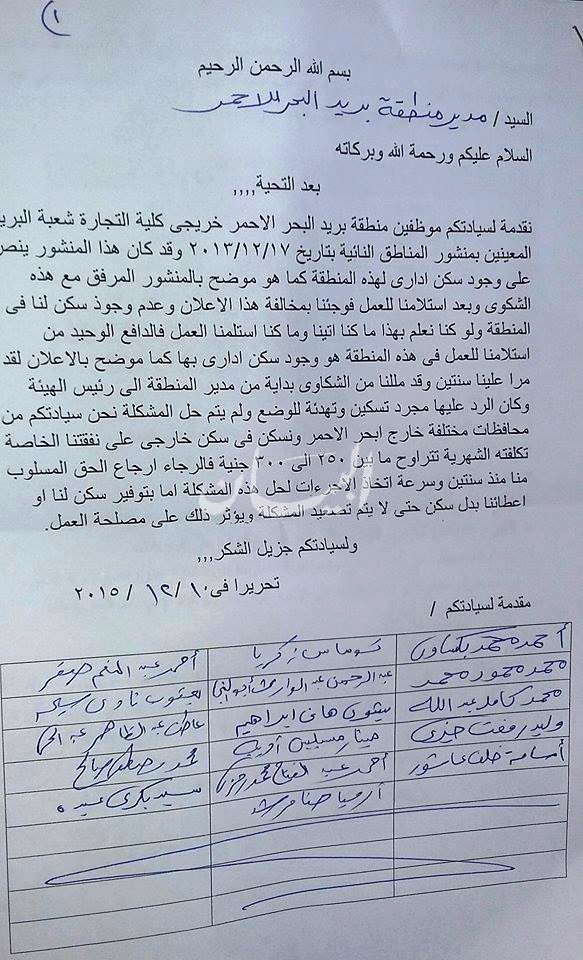 ١
بسم الله الرحمن الرحيم
السيد / مدير منطقة بريد البحر الاحمر
السلام عليكم ورحمة الله وبركاته
بعد التحية ,,,,
نقدمة لسيادتكم موظفين منطقة بريد البحر الاحمر خريجى كلية التجارة شعبة البري
المعينين بمنشور المناطق النائية بتاريخ ٢٠١٣/١٢/١٧ وقد كان هذا المنشور ينص
على وجود سكن ادارى لهذه المنطقة كما هو موضح بالمنشور المرفق مع هذه
الشكوى وبعد استلامنا للعمل فوجئنا بمخالفة هذا الاعلان وعدم وجوذ سكن لنا فى
المنطقة ولو كنا نعلم بهذا ما كنا اتينا وما كنا استلمنا العمل فالدافع الوحيد من
استلامنا للعمل فى هذه المنطقة هو وجود سكن ادارى بها كما موضح بالاعلان لقد
مرا علينا سنتين وقد مللنا من الشكاوى بداية من مدير المنطقة الى رئيس الهيئة
وكان الرد عليها مجرد تسكين وتهدئة للوضع ولم يتم حل المشكلة نحن سيادتكم من
محافظات مختلفة خارج ابحر الاحمر ونسكن فى سكن خارجى على نفقتنا الخاصة
تكلفته الشهرية تتراوح ما بين ٢٥٠ الى ٣٠٠ جنية فالرجاء ارجاع الحق المسلوب
منا منذ سنتين وسرعة اتخاذ الاجرءات لحل هذه المشكلة اما بتوفير سكن لنا او
اعطائنا بدل سكن حتى لا يتم تصعيد المشكله ويؤثر ذلك على مصلحة العمل.
ولسيادتكم جزيل الشكر,,,
تحريرا فى ١٠ / ١٢ / ٢٠١٥
مقدمة لسيادتكم /
أحمد محمد توماس زكريا أحمد عبد المنعم
محمد محمود محمد عبد الرحمن عبد الوارث يعقوب نادى
محمد كامل عبد الله هانى ابراهيم عاطف عبد الظاهر
وليد رفعت مينا محمد مصطفى
أسامة خلف عاشور أحمد عبد الفتاح محمد سيد بكرى سيد
أرميا حنا
البيان